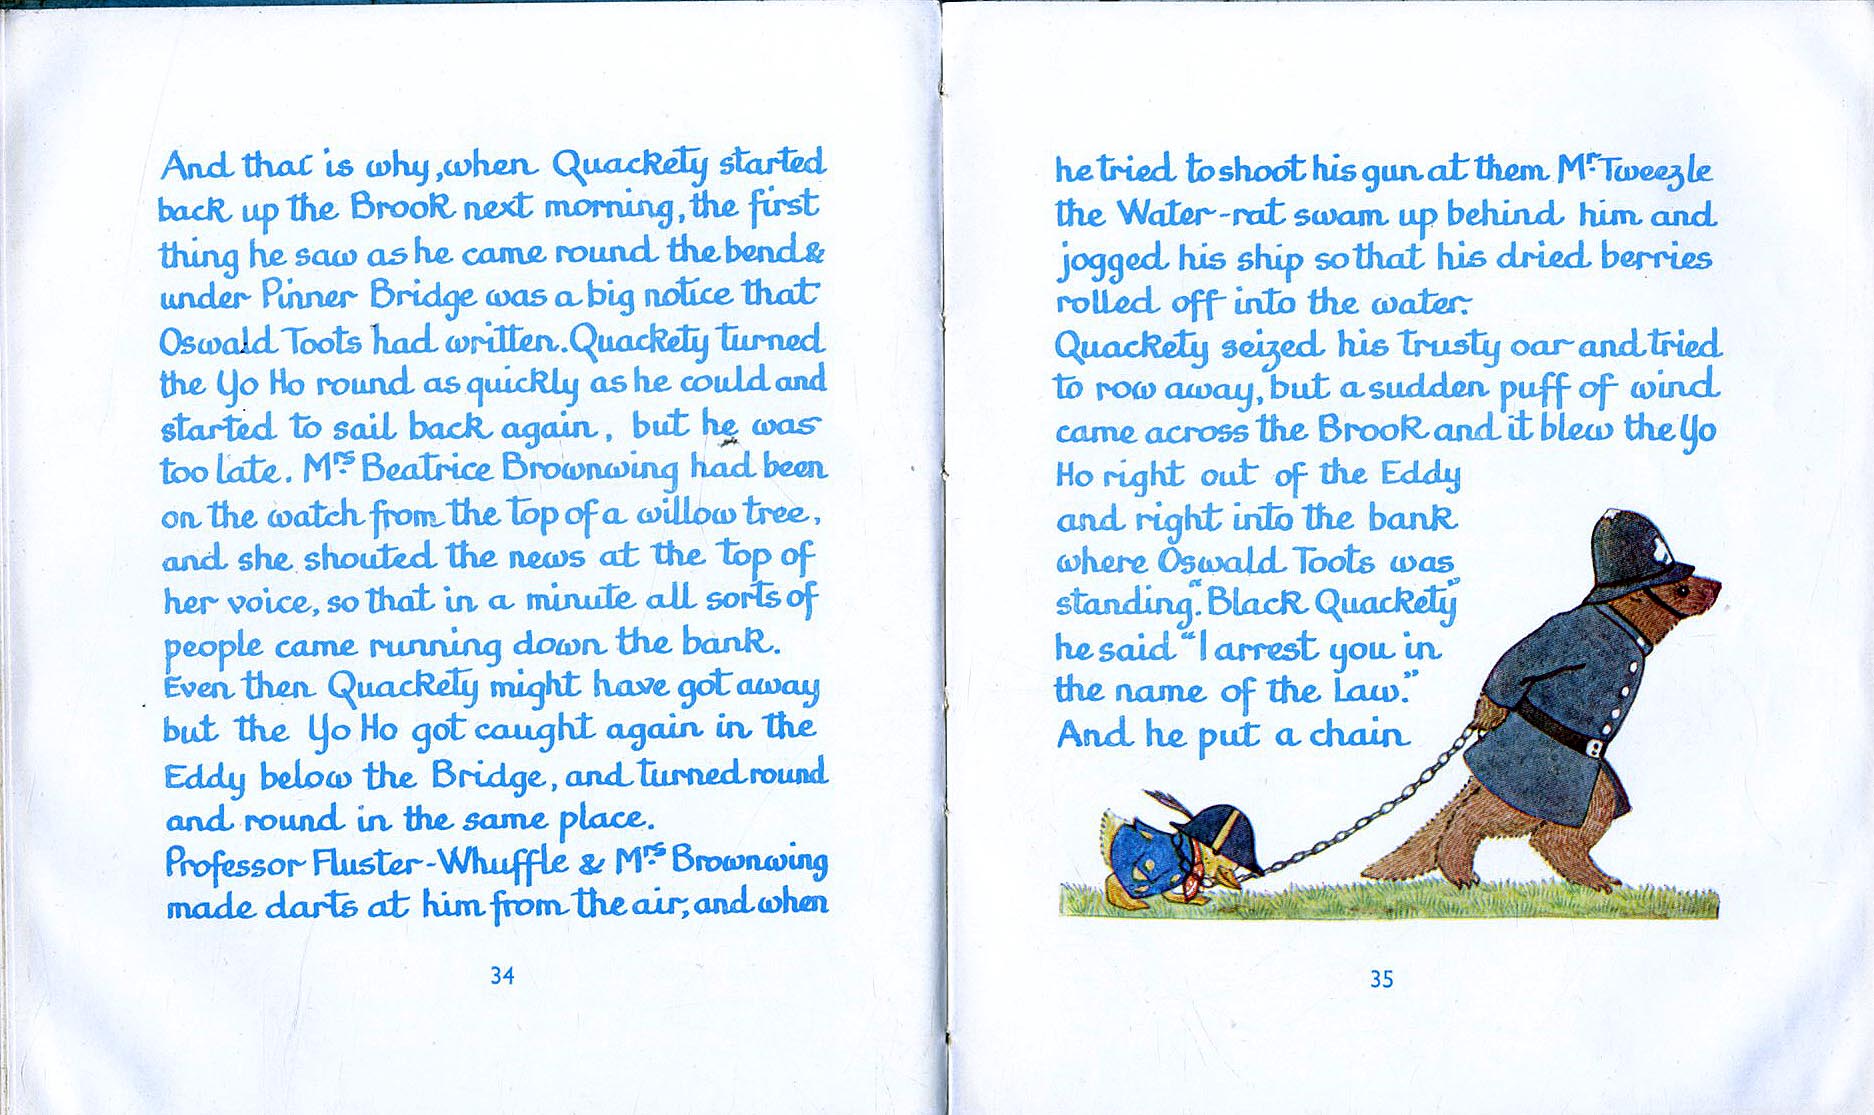 And that is why, when Quackety started
back up the Brook next morning, the first
thing he saw as he came round the bend &
under Pinner Bridge was a big notice that
Oswald Toots had written. Quackety turned
the Yo Ho round as quickly as he could and
started to sail back again, but he was
too late. Mrs Beatrice Brownwing had been
on the watch from the top of a willow tree,
and she shouted the news at the top of
her voice, so that in a minute all sorts of
people came running down the bank.
Even then Quackety might have got away
but the Yo Ho got caught again in the
Eddy below the Bridge, and turned round
and round in the same place.
Professor Fluster-Whuffle & Mrs Brownwing
made darts at him from the air, and when
34
he tried to shoot his gun at them Mr. Tweezle
the Water-rat swam up behind him and
jogged his ship so that his dried berries
rolled off into the water.
Quackety seized his trusty oar and tried
to row away, but a sudden puff of wind
came across the Brook and it blew the Yo
Ho right out of the Eddy
and right into the bank
where Oswald Toots was
standing. "Black Quackety"
he said "I arrest you in
the name of the Law."
And he put a chain
35